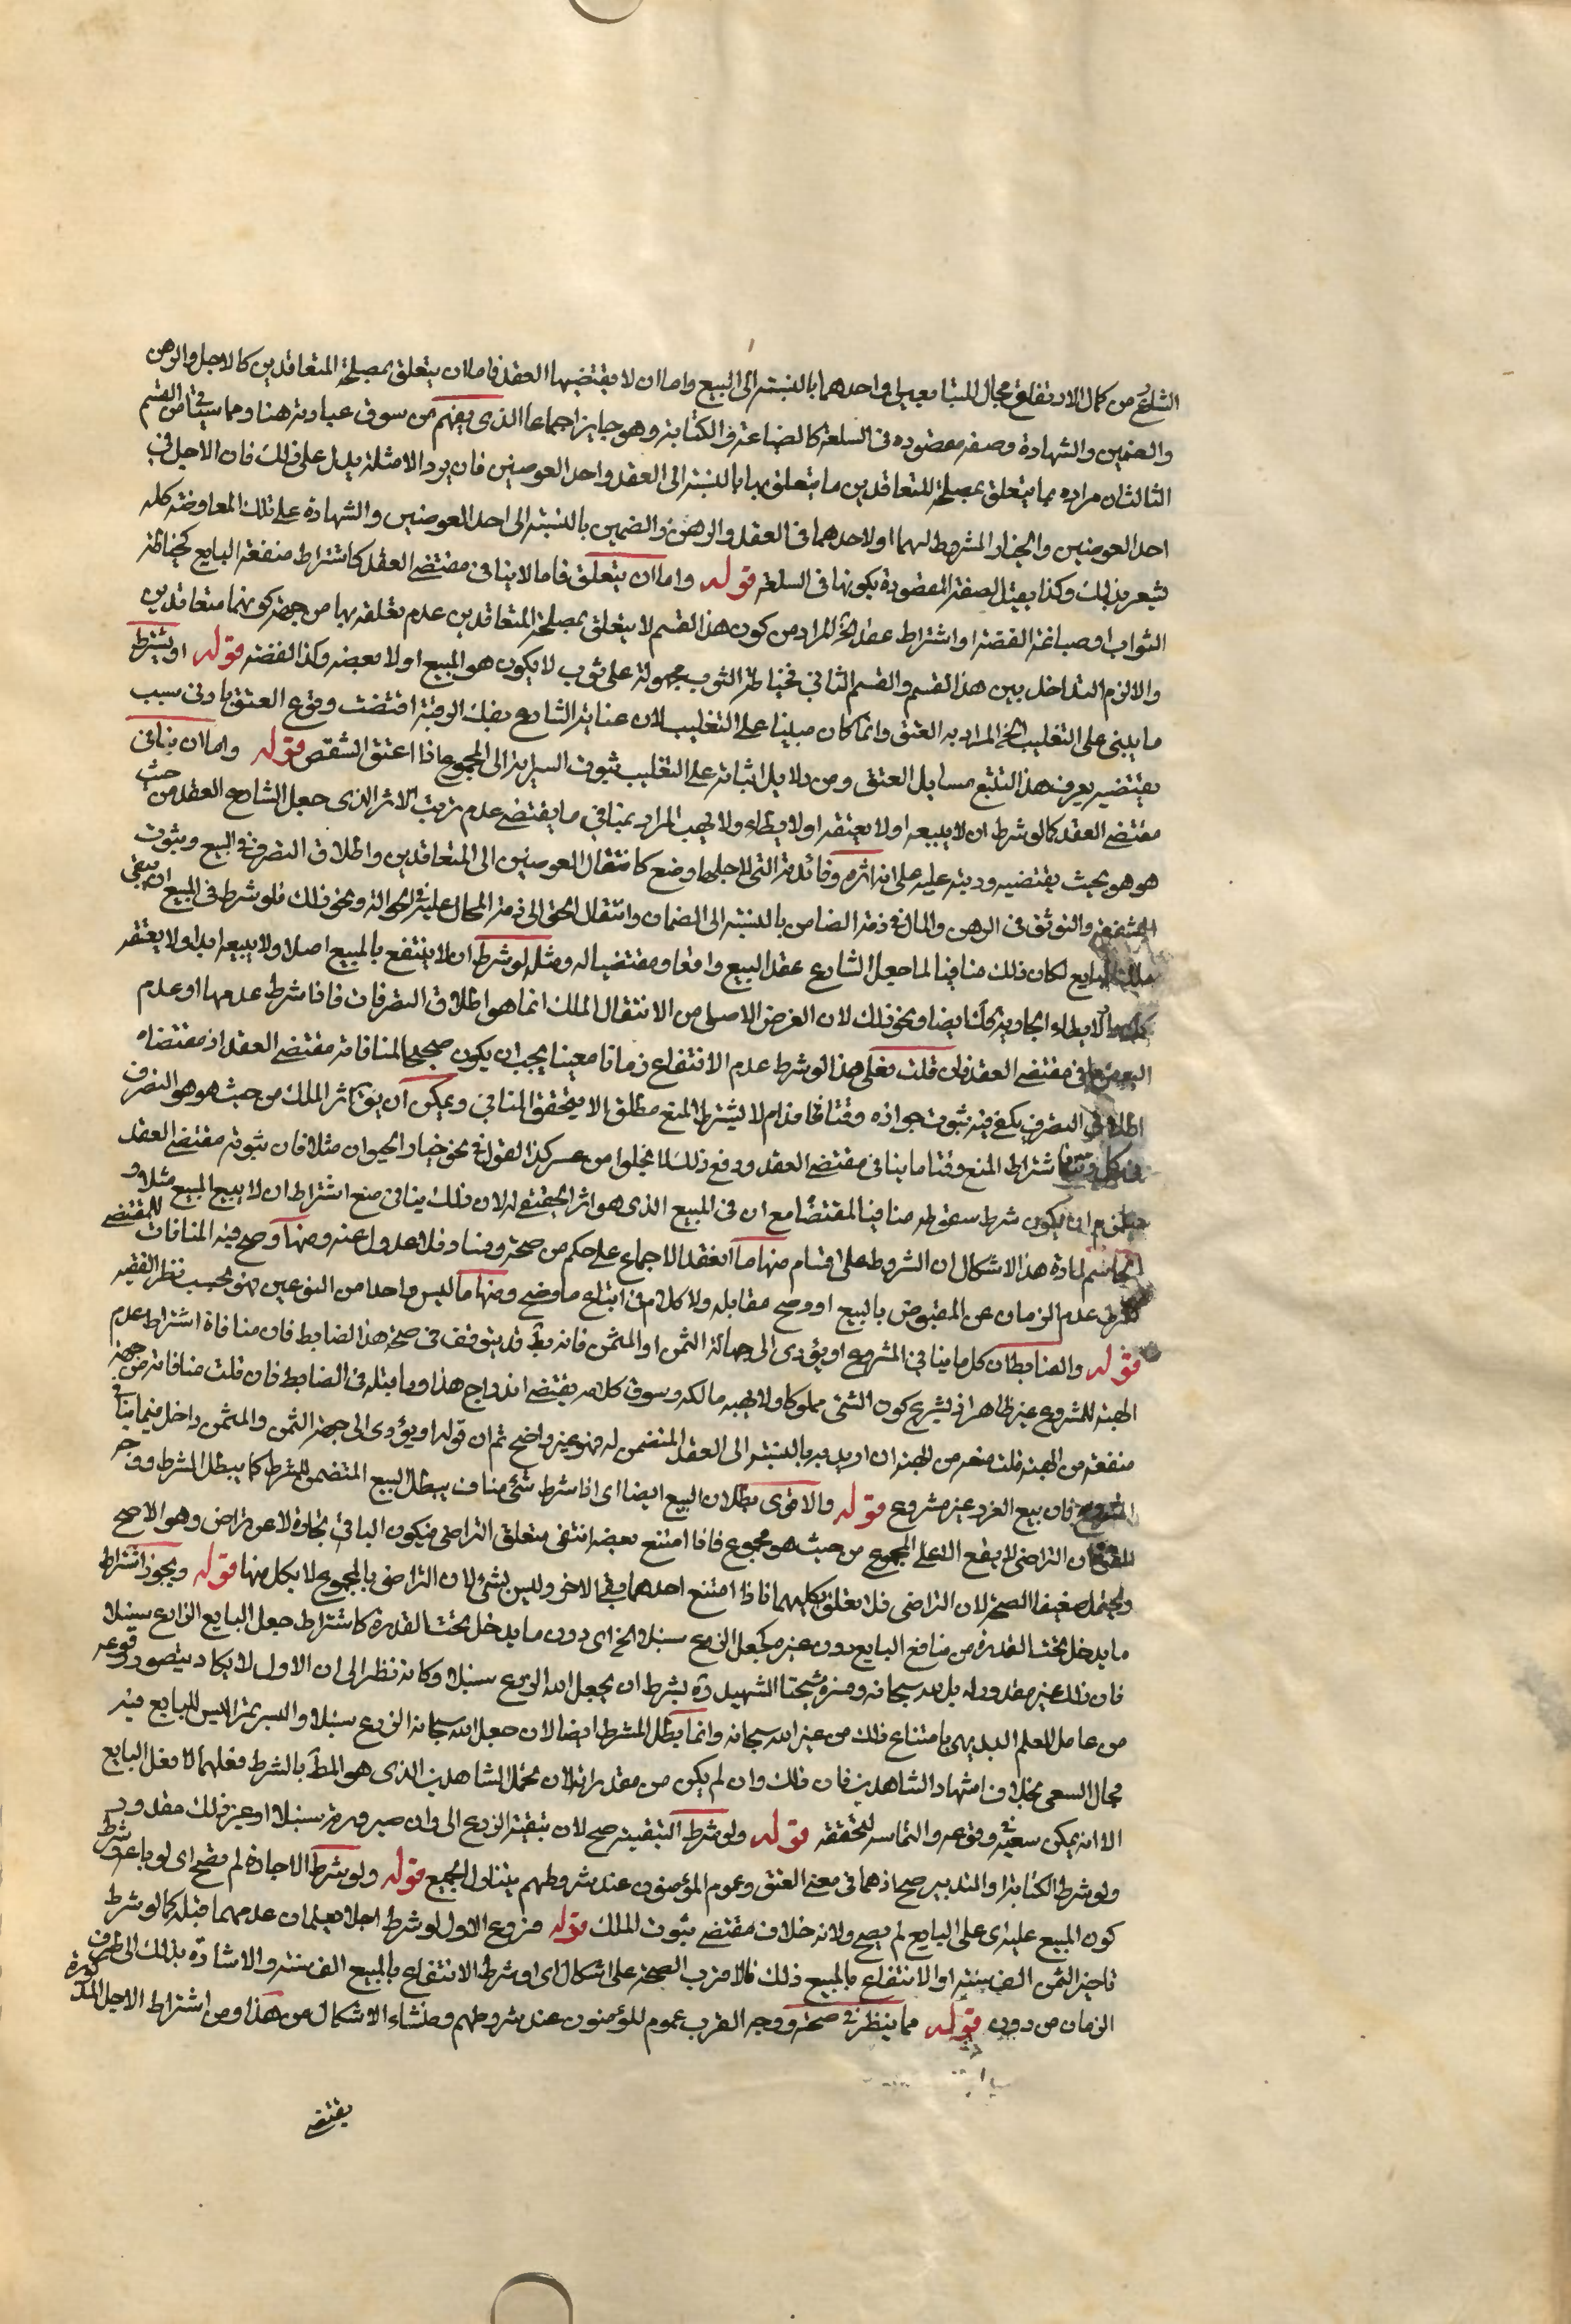 الشارع من كمال الارتفاع مجال المتبايعين او احدهما بالنسبة الى البيع واما ان لا يقتضيها العقد فاما ان يتعلق بمصلحة المتعاقدين كالاجل والرهن
والضمين والشهادة وصفه مقصوده في السلعة كالصياغة والكتابة وهو جايز اجماعا الذي يفهم من سوق عبارته هنا ومما سيأتي في القسم
الثالث ان مراده بما يتعلق بمصلحة المتعاقدين ما يتعلق بها بالنسبة الى العقد واحد العوضين فان يورد الامثلة يدل على ذلك فان الاجل في
احد العوضين والخيار المشروط لهما او لاحدهما في العقد والرهن والضمين بالنسبة الى احد العوضين والشهادة على تلك المعاوضة كله
يشعر بذلك وكذا يقتل الصفة المقصودة بكونها في السلعة قوله واما ان يتعلق فاما لا ينافى مقتضى العقد كاشتراط منفعة البايع كخياطة
الثواب او صباغة الفضة او اشتراط عقد الخ المراد من كون هذا القسم لا يتعلق بمصلحة المتعاقدين عدم تعلقه بها من جهة كونهما متعاقدين
والا لزم التداخل بين هذا القسم والقسم الثاني فخياطة الثوب مجهولة على ثوب لا يكون هو المبيع او لا بعضه وكذا الفضة قوله او يشترط
ما يبنى على التغليب الخ المراد به العتق وانما كان مبنيا على التغليب لان عناية الشارع بفك الرقبة اقتضت وقوع العتق بادنى سبب
يقتضيه يعرف هذا التتبع مسايل العتق ومن دلايل اثباته على التغليب ثبوت السراية الى المجموع اذا اعتق الشقص قوله واما ان ينافى
مقتضى العقد كما لو شرط ان لا يبيعه او لا يعتقه او لا يطاء ولا يهب المراد بمنافي ما يقتضى عدم ترتب الاثر الذي جعل الشارع العقد من حيث
هو هو بحيث يقتضيه ورتبه عليه على انه اثره وفائدته التي لاجلها وضع كانتقال العوضين الى المتعاقدين واطلاق التصرف في البيع وثبوت
والتوثق في الرهن والمال في ذمة الضامن بالنسبة الى الضمان وانتقال الحق الى ذمة المحال عليه في الحوالة ونحو ذلك فلو شرط في المبيع ان يبقى
ملك البايع لكان ذلك منافيا لما جعل الشارع عقد البيع واقعا ومقتضيا له ومثله لو شرط ان لا ينتفع بالمبيع اصلا ولا يبيعه ابدا ولا يعتقه
كله او لا يطاء الجارية كك ايضا ونحو ذلك لان الغرض الاصلى من الانتقال الملك انما هو اطلاق التصرفات فاذا شرط عدمها او عدم
البعض نافى مقتضى العقد فان قلت فعلى هذا لو شرط عدم الانتفاع زمانا معينا يجب ان يكون صحيحا لمنافاته مقتضى العقد اذ مقتضاه
اطلاق التصرف يكفى فيه ثبوت جوازه وقتا ما اذ لم يشترط المنع مطلق الا يتحقق المنافي ويمكن ان يق اثر الملك من حيث هو هو التصرف
في كل وقت اشتراط المنع وقتا ما ينافى مقتضى العقد ودفع ذلك لا يخلوا من عسر كذا القول في نحو خيار الحيوان مثلا فان ثبوته مقتضى العقد
فيلزم ان يكون شرط سقوطه منافيا لمقتضاه مع ان في المبيع الذي هو اثر الحقيقى له لان ذلك ينافى منع اشتراط ان لا يبيع المبيع مثلا و
الحاسم لمادة هذا الاشكال ان الشروط على اقسام منها ما انعقد الاجماع على حكم من صحة وفساد فلا عدول عنه ومنها وضح فيه المنافات للمقتضى
كشرط عدم الزمان عن المقبوض بالبيع او وضح مقابله ولا كلام في اتباع ما وضح ومنها ما ليس واحدا من النوعين فهو بحسب نظر الفقيه
قوله والضابط ان كل ما ينافي المشروع او يؤدى الى جهالة الثمن او المثمن فانه يط قد يتوقف في صحة هذا الضابط فان منافاة اشتراط عدم
الهبة للمشروع غير ظاهر اذ لم يشرع كون الشئ مملوكا ولا يهبه مالكه وسوق كلامه يقتضى اندراج هذا وما قبله في الضابط فان قلت منافاته من جهة
منعه من الهبة قلت منعه من الهبة ان اريد به بالنسبة الى العقد المتضمن له فهو غير واضح ثم ان قوله او يؤدى الى جهالة الثمن والمثمن داخل فيما ينافى
المشروع فان بيع الغرر غير مشروع قوله والاقوى بطلان البيع ايضا اى اذا شرط شئ مناف يبطل البيع المتضمن للشرط كما يبطل الشرط ووجه
القوة ان التراضي لم يقع الا على المجموع من حيث هو مجموع فاذا امتنع بعضه انتفى متعلق التراضي فيكون الباقي تجارة لا عن تراض وهو الاصح
ويحتمل ضعيفا الصحة لان التراضى قد تعلق بكليهما فاذا امتنع احدهما بقى الاخر وليس بشئ لان التراضى بالمجموع لا بكل منها قوله ويجوز اشتراط
ما يدخل تحت القدرة من منافع البايع دون غيره كجعل الزرع سنبلا الخ اى دون ما يدخل تحت القدرة كاشتراط جعل البايع الزرع سنبلا
فان ذلك غير مقدور له بل لله سبحانه وفسره شيخنا الشهيد ره بشرط ان يجعل الله الزرع سنبلا وكانه نظر الى ان الاول لا يكاد يتصور وقوعه
من عاقل للعلم البديهى بامتناع ذلك من غير الله سبحانه وانما يبطل الشرط ايضا لان جعل الله سبحانه الزرع سنبلا والبسر تمرا ليس للبايع فيه
مجال السعى بخلاف اشهاد الشاهدين فان ذلك وان لم يكن من مقدراته لان تحمل الشاهدين الذي هو المط بالشرط فعلهما لا فعل البايع
الا انه يمكن سعيه في وقوعه والتماسه لتحققه قوله ولو شرط التبقية صح لان تبقية الزرع الى وان صيرورته سنبلا او غير ذلك مقدور
ولو شرط الكتابة او التدبير صح اذ هما في معنى العتق وعموم المؤمنون عند شروطهم يتناول الجميع قوله ولو شرط الاجارة لم يصح اى لو باعه وشرط
كون المبيع عليه اى على البايع لم يصح ولانه خلاف مقتضى ثبوت الملك قوله فروع الاول لو شرط اجلا يعلمان عدمهما قبله كما لو شرط
تاخير الثمن الف سنة او الانتفاع بالمبيع ذلك فالاقرب الصحة على اشكال اى او شرط الانتفاع بالمبيع الف سنة والاشارة بذلك الى ظرف
الزمان من دون قوله مما ينظر في صحته ووجه القرب عموم المؤمنون عند شروطهم ومنشاء الاشكال من هذا ومن اشتراط الاجل المذكورة
يقتضى